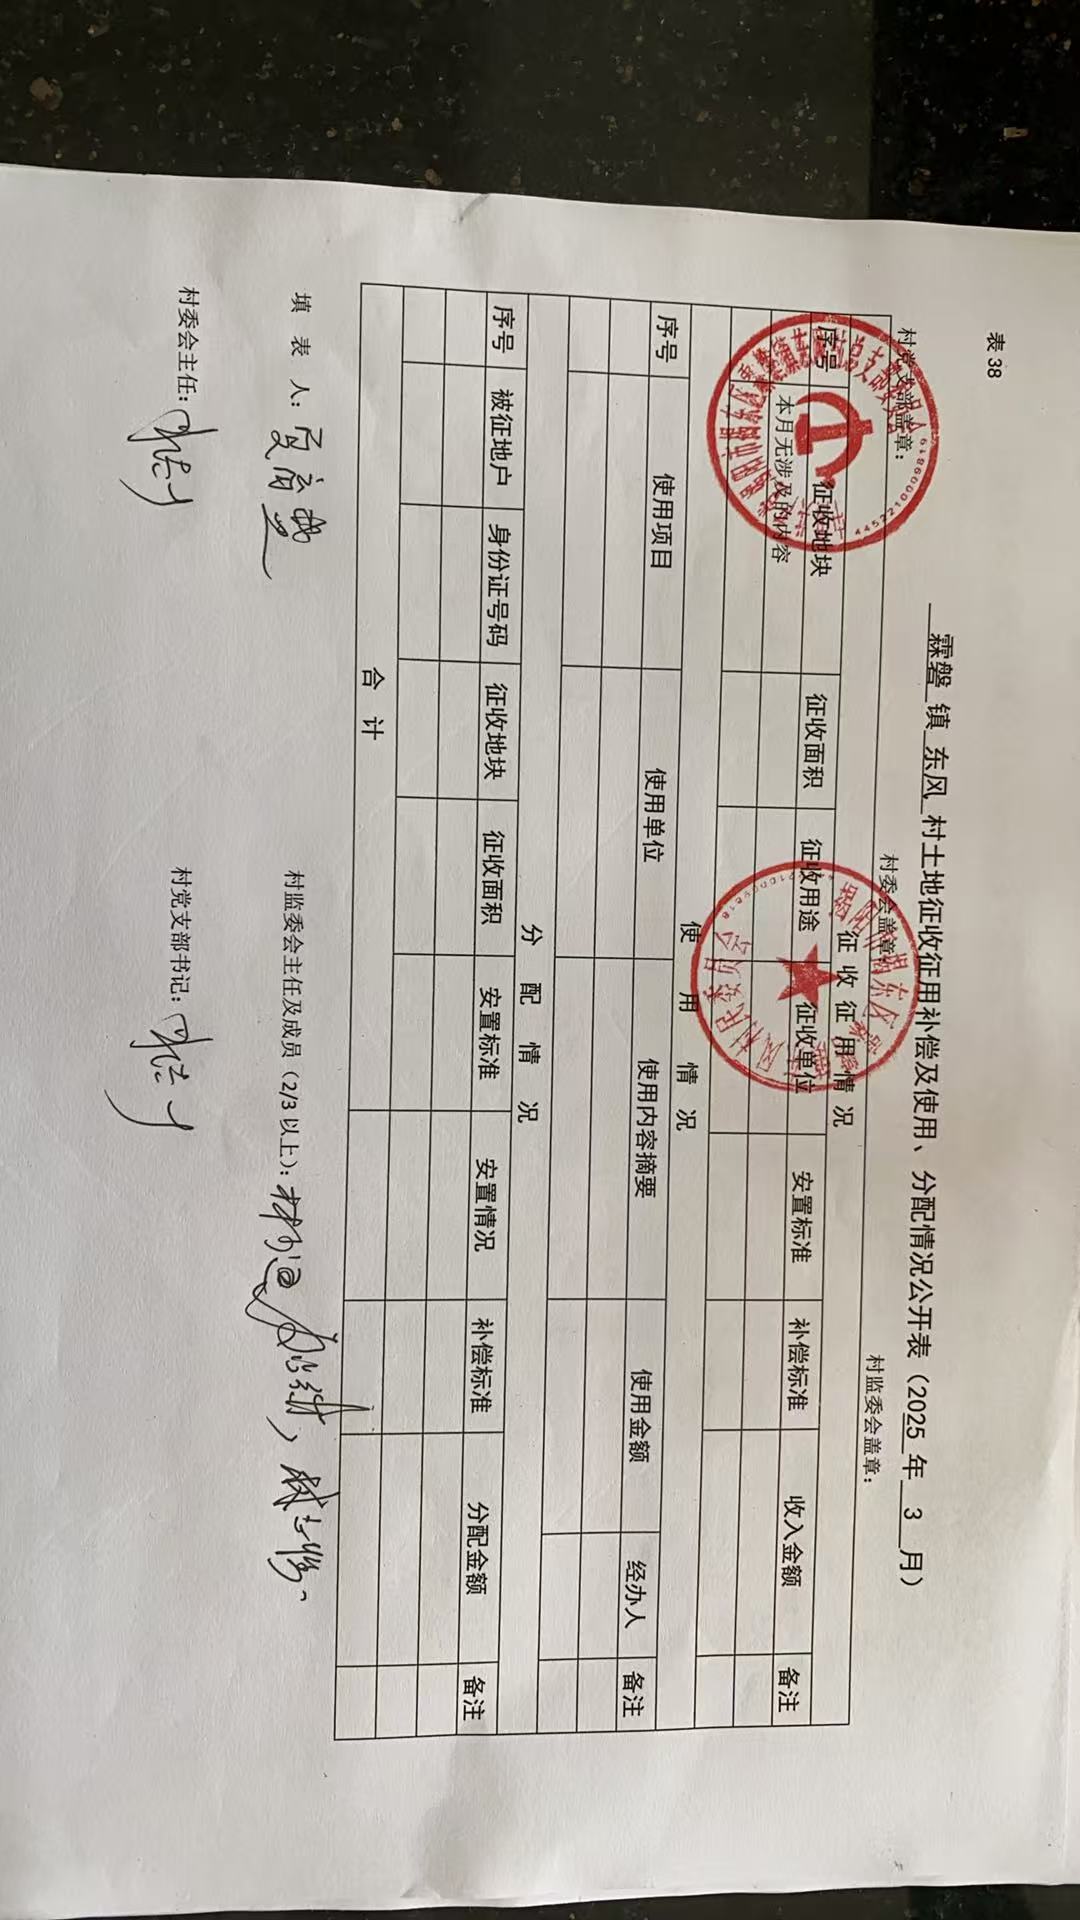 表 38
霖磐 镇 东风 村土地征收征用补偿及使用、分配情况公开表（2025 年 3 月）
村党支部盖章： 村委会盖章： 村监委会盖章：
征 收 征 用 情 况
序号 征收地块 征收面积 征收用途 征收单位 安置标准 补偿标准 收入金额 备注
本月无涉及的内容
使 用 情 况
序号 使用项目 使用单位 使用内容摘要 使用金额 经办人 备注
分 配 情 况
序号 被征地户 身份证号码 征收地块 征收面积 安置标准 安置情况 补偿标准 分配金额 备注
合 计
填 表 人： 村监委会主任及成员（2/3 以上）：
村委会主任： 村党支部书记：